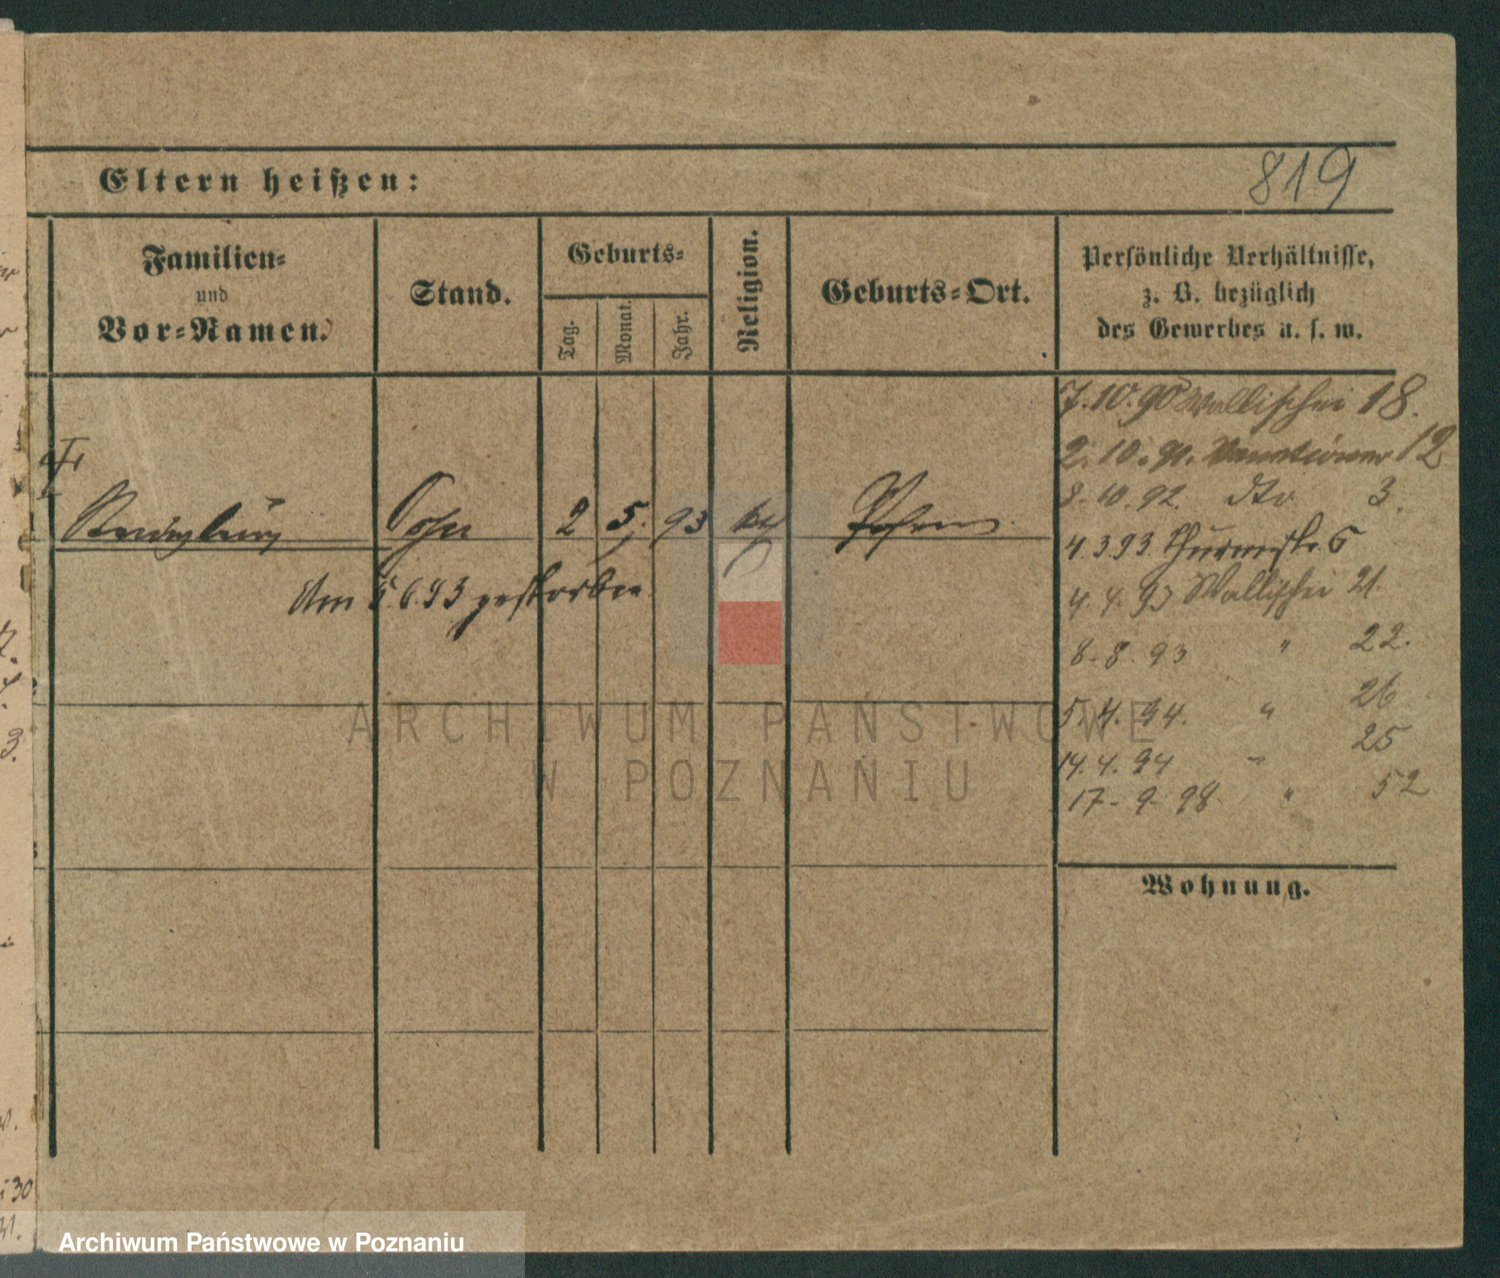 Eltern heißen:
819
Familien-
und
Vor-Namen.
Stand.
Geburts-
Tag.
Monat.
Jahr.
Religion.
Geburts-Ort.
Persönliche Verhältnisse,
z. B. bezüglich
des Gewerbes u. s. w.
7.10.90 Wallischei 18.
2.10.91. 12
8.10.92. dto 3.
Sohn 2 5. 93 kth Posen
4 3 93. 6
Am 5.6.93 gestorben
4.4.93 Wallischei 21.
8.8.93 " 22.
5.4.94. " 26
14.4.94 " 25
17.9.98 " 52
ARCHIWUM PAŃSTWOWE
W POZNANIU
Wohnung.
30
Archiwum Państwowe w Poznaniu